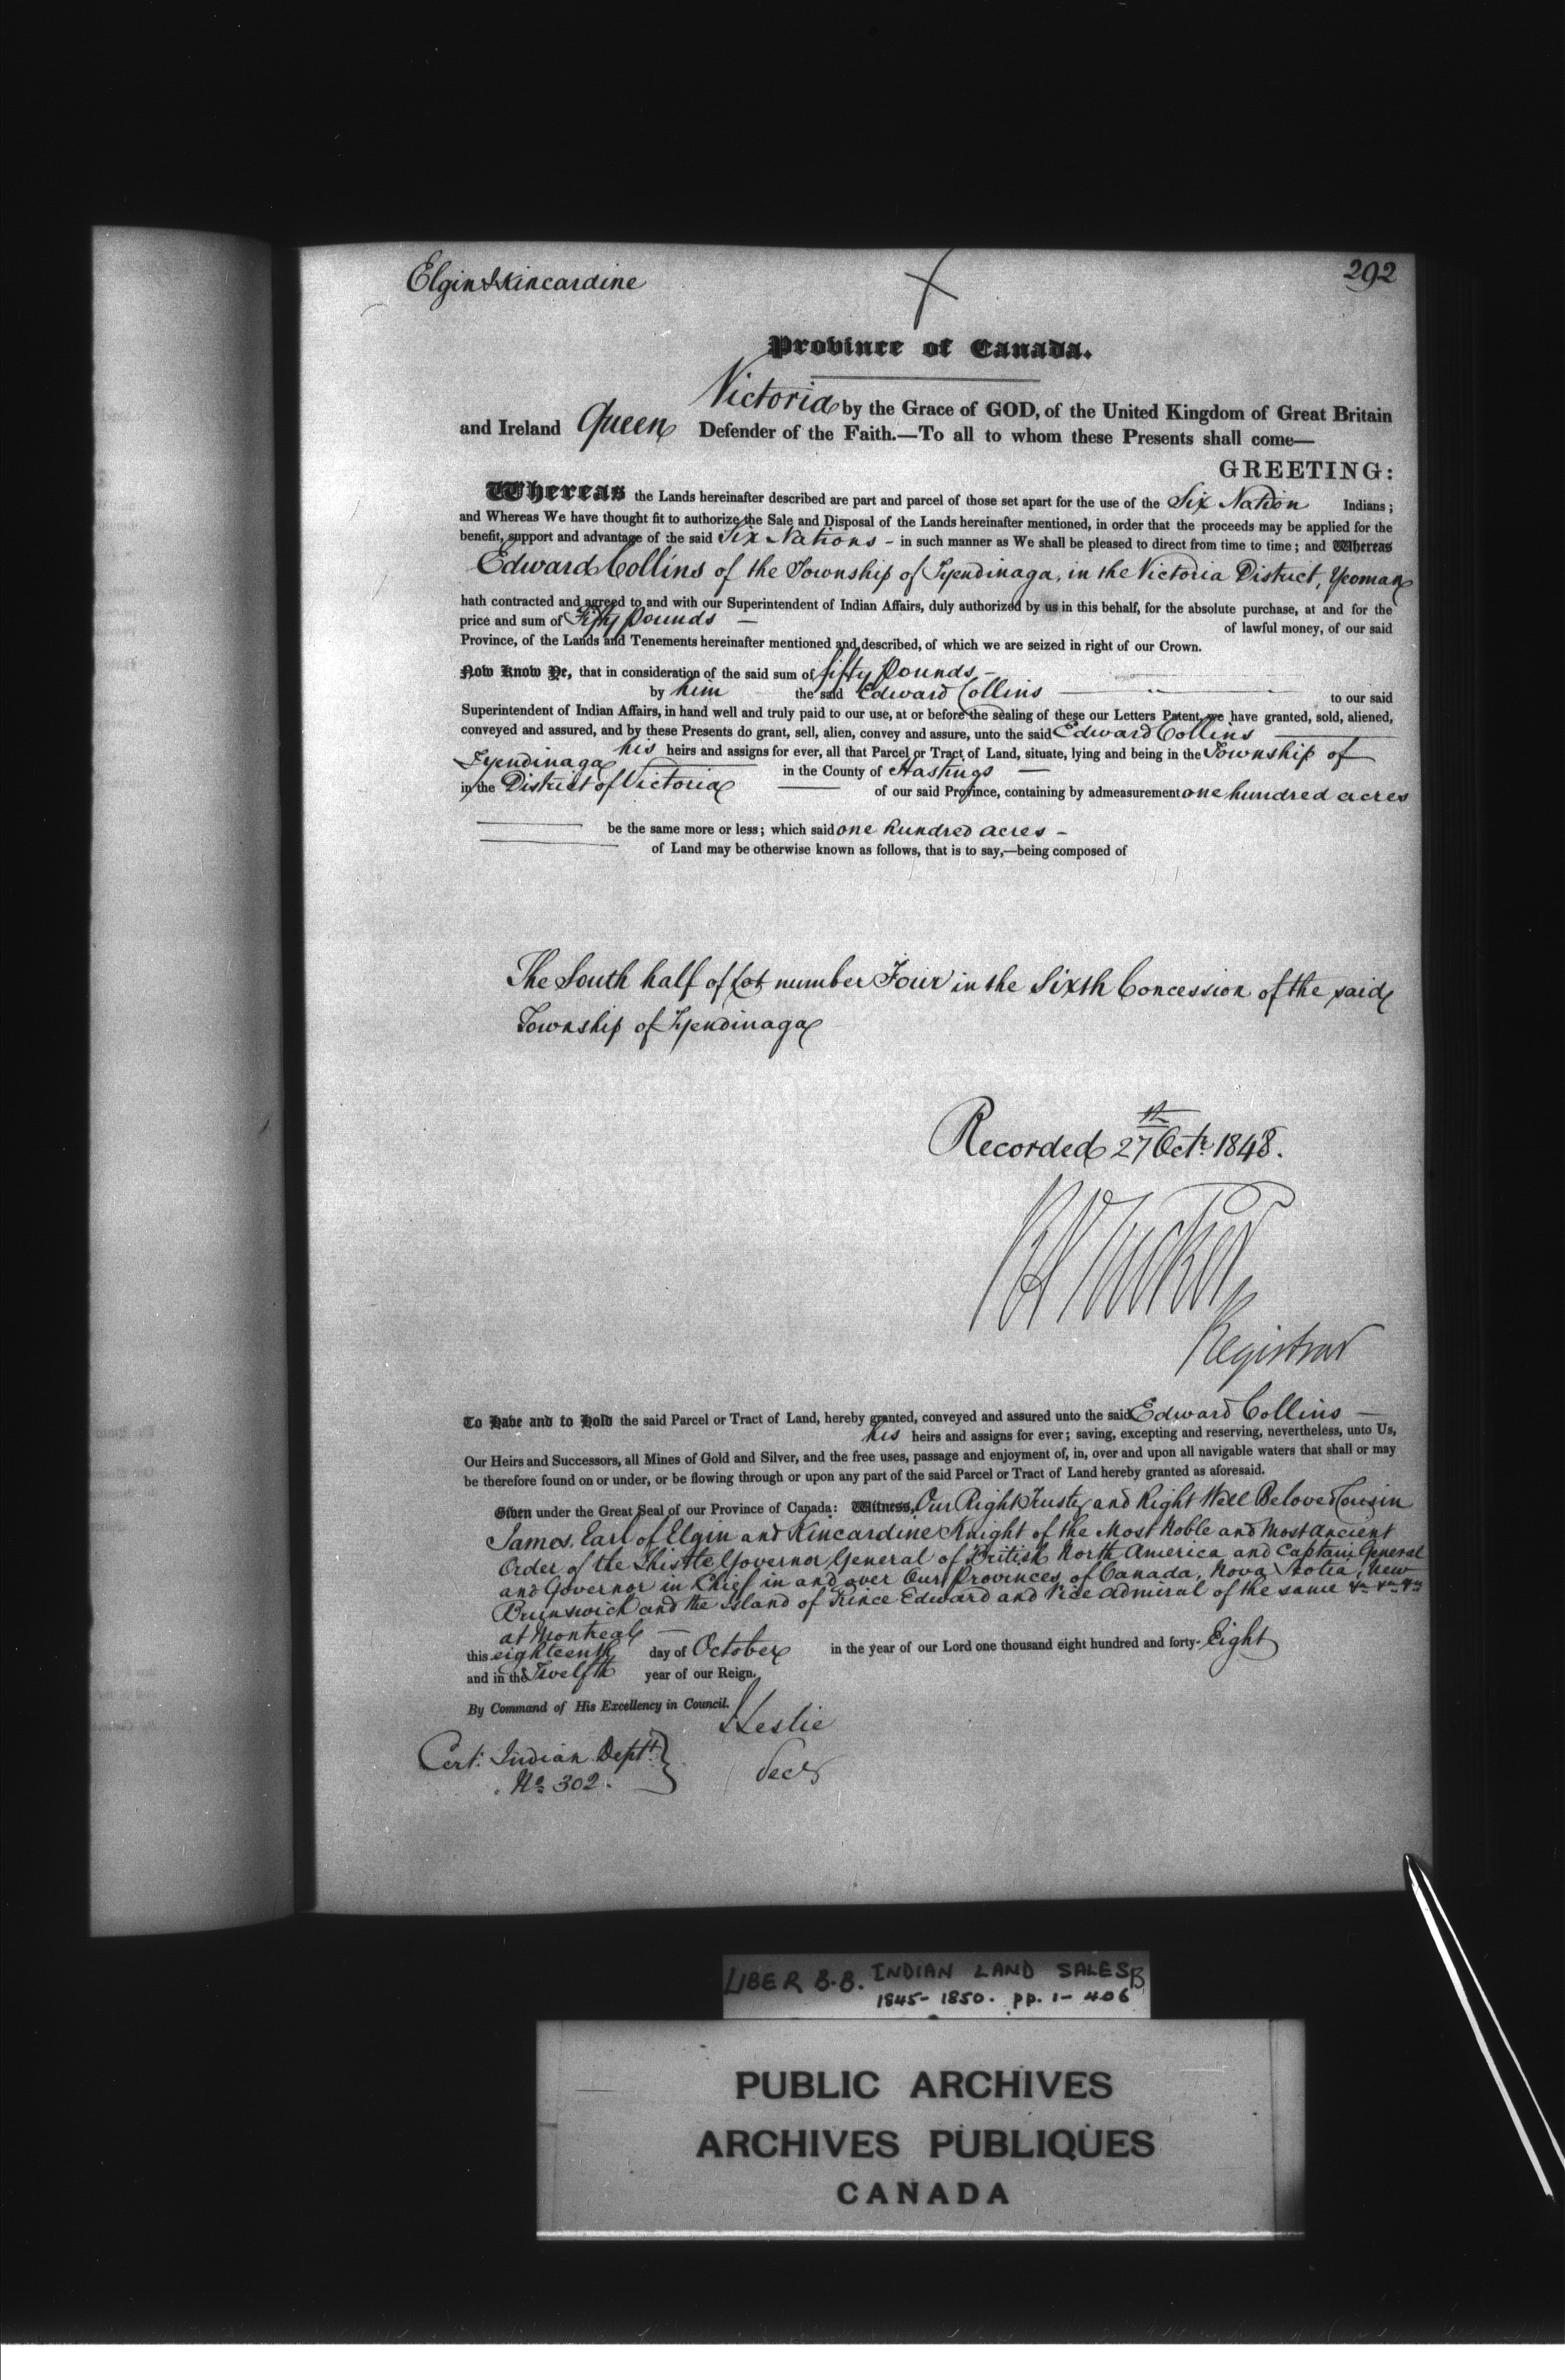 Elgin & Kincardine
292
Province of Canada.
Victoria by the Grace of GOD, of the United Kingdom of Great Britain
and Ireland Queen Defender of the Faith.—To all to whom these Presents shall come—
GREETING:
Whereas the Lands hereinafter described are part and parcel of those set apart for the use of the Six Nation Indians;
and Whereas We have thought fit to authorize the Sale and Disposal of the Lands hereinafter mentioned, in order that the proceeds may be applied for the
benefit, support and advantage of the said Six Nations - in such manner as We shall be pleased to direct from time to time; and Whereas
Edward Collins of the Township of Tyendinaga, in the Victoria District, Yeoman
hath contracted and agreed to and with our Superintendent of Indian Affairs, duly authorized by us in this behalf, for the absolute purchase, at and for the
price and sum of Fifty Pounds — of lawful money, of our said
Province, of the Lands and Tenements hereinafter mentioned and described, of which we are seized in right of our Crown.
Now Know Ye, that in consideration of the said sum of fifty Pounds —
by him the said Edward Collins — to our said
Superintendent of Indian Affairs, in hand well and truly paid to our use, at or before the sealing of these our Letters Patent, we have granted, sold, aliened,
conveyed and assured, and by these Presents do grant, sell, alien, convey and assure, unto the said Edward Collins —
his heirs and assigns for ever, all that Parcel or Tract of Land, situate, lying and being in the Township of
Tyendinaga — in the County of Hastings —
in the District of Victoria — of our said Province, containing by admeasurement one hundred acres
— be the same more or less; which said one hundred acres -
— of Land may be otherwise known as follows, that is to say,—being composed of
The South half of Lot number Four in the Sixth Concession of the said
Township of Tyendinaga
Recorded 27th Octr. 1848.
R A Tucker
Registrar
To Have and to Hold the said Parcel or Tract of Land, hereby granted, conveyed and assured unto the said Edward Collins —
his heirs and assigns for ever; saving, excepting and reserving, nevertheless, unto Us,
Our Heirs and Successors, all Mines of Gold and Silver, and the free uses, passage and enjoyment of, in, over and upon all navigable waters that shall or may
be therefore found on or under, or be flowing through or upon any part of the said Parcel or Tract of Land hereby granted as aforesaid.
Given under the Great Seal of our Province of Canada: Witness, Our Right Trusty and Right Well Beloved Cousin
James, Earl of Elgin and Kincardine Knight of the Most Noble and Most Ancient
Order of the Thistle Governor General of British North America and Captain General
and Governor in Chief in and over Our Provinces of Canada, Nova Scotia, New
Brunswick and the Island of Prince Edward and Vice Admiral of the same &c &c &c
at Montreal —
this eighteenth day of October in the year of our Lord one thousand eight hundred and forty-Eight
and in the Twelfth year of our Reign.
By Command of His Excellency in Council.
J Leslie
Secy
Cert. Indian Deptt.
No. 302.
LIBER B.B. INDIAN LAND SALES B
1845-1850. pp. 1-406
PUBLIC ARCHIVES
ARCHIVES PUBLIQUES
CANADA